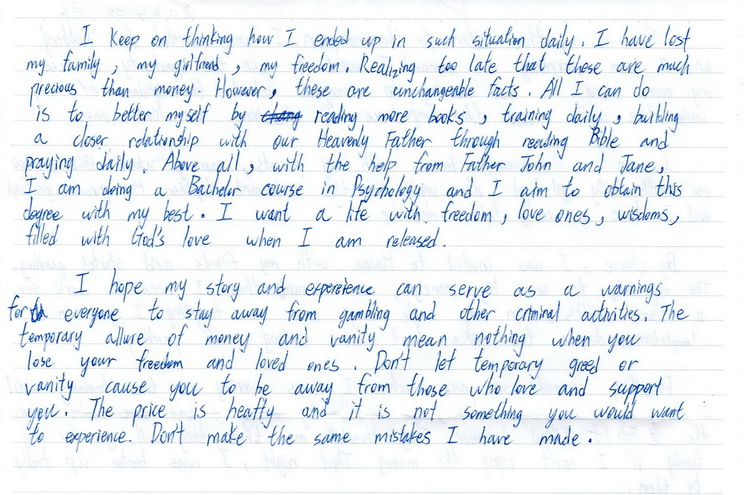 I keep on thinking how I ended up in such situation daily. I have lost
my family, my girlfriend, my freedom. Realizing too late that these are much
precious than money. However, these are unchangeable facts. All I can do
is to better myself by chang reading more books, training daily, building
a closer relationship with our Heavenly Father through reading Bible and
praying daily. Above all, with the help from Father John and Jane,
I am doing a Bachelor course in Psychology and I aim to obtain this
degree with my best. I want a life with freedom, love ones, wisdoms,
filled with God's love when I am released.
I hope my story and experience can serve as a warnings
for everyone to stay away from gambling and other criminal activities. The
temporary allure of money and vanity mean nothing when you
lose your freedom and loved ones. Don't let temporary greed or
vanity cause you to be away from those who love and support
you. The price is heafty and it is not something you would want
to experience. Don't make the same mistakes I have made.